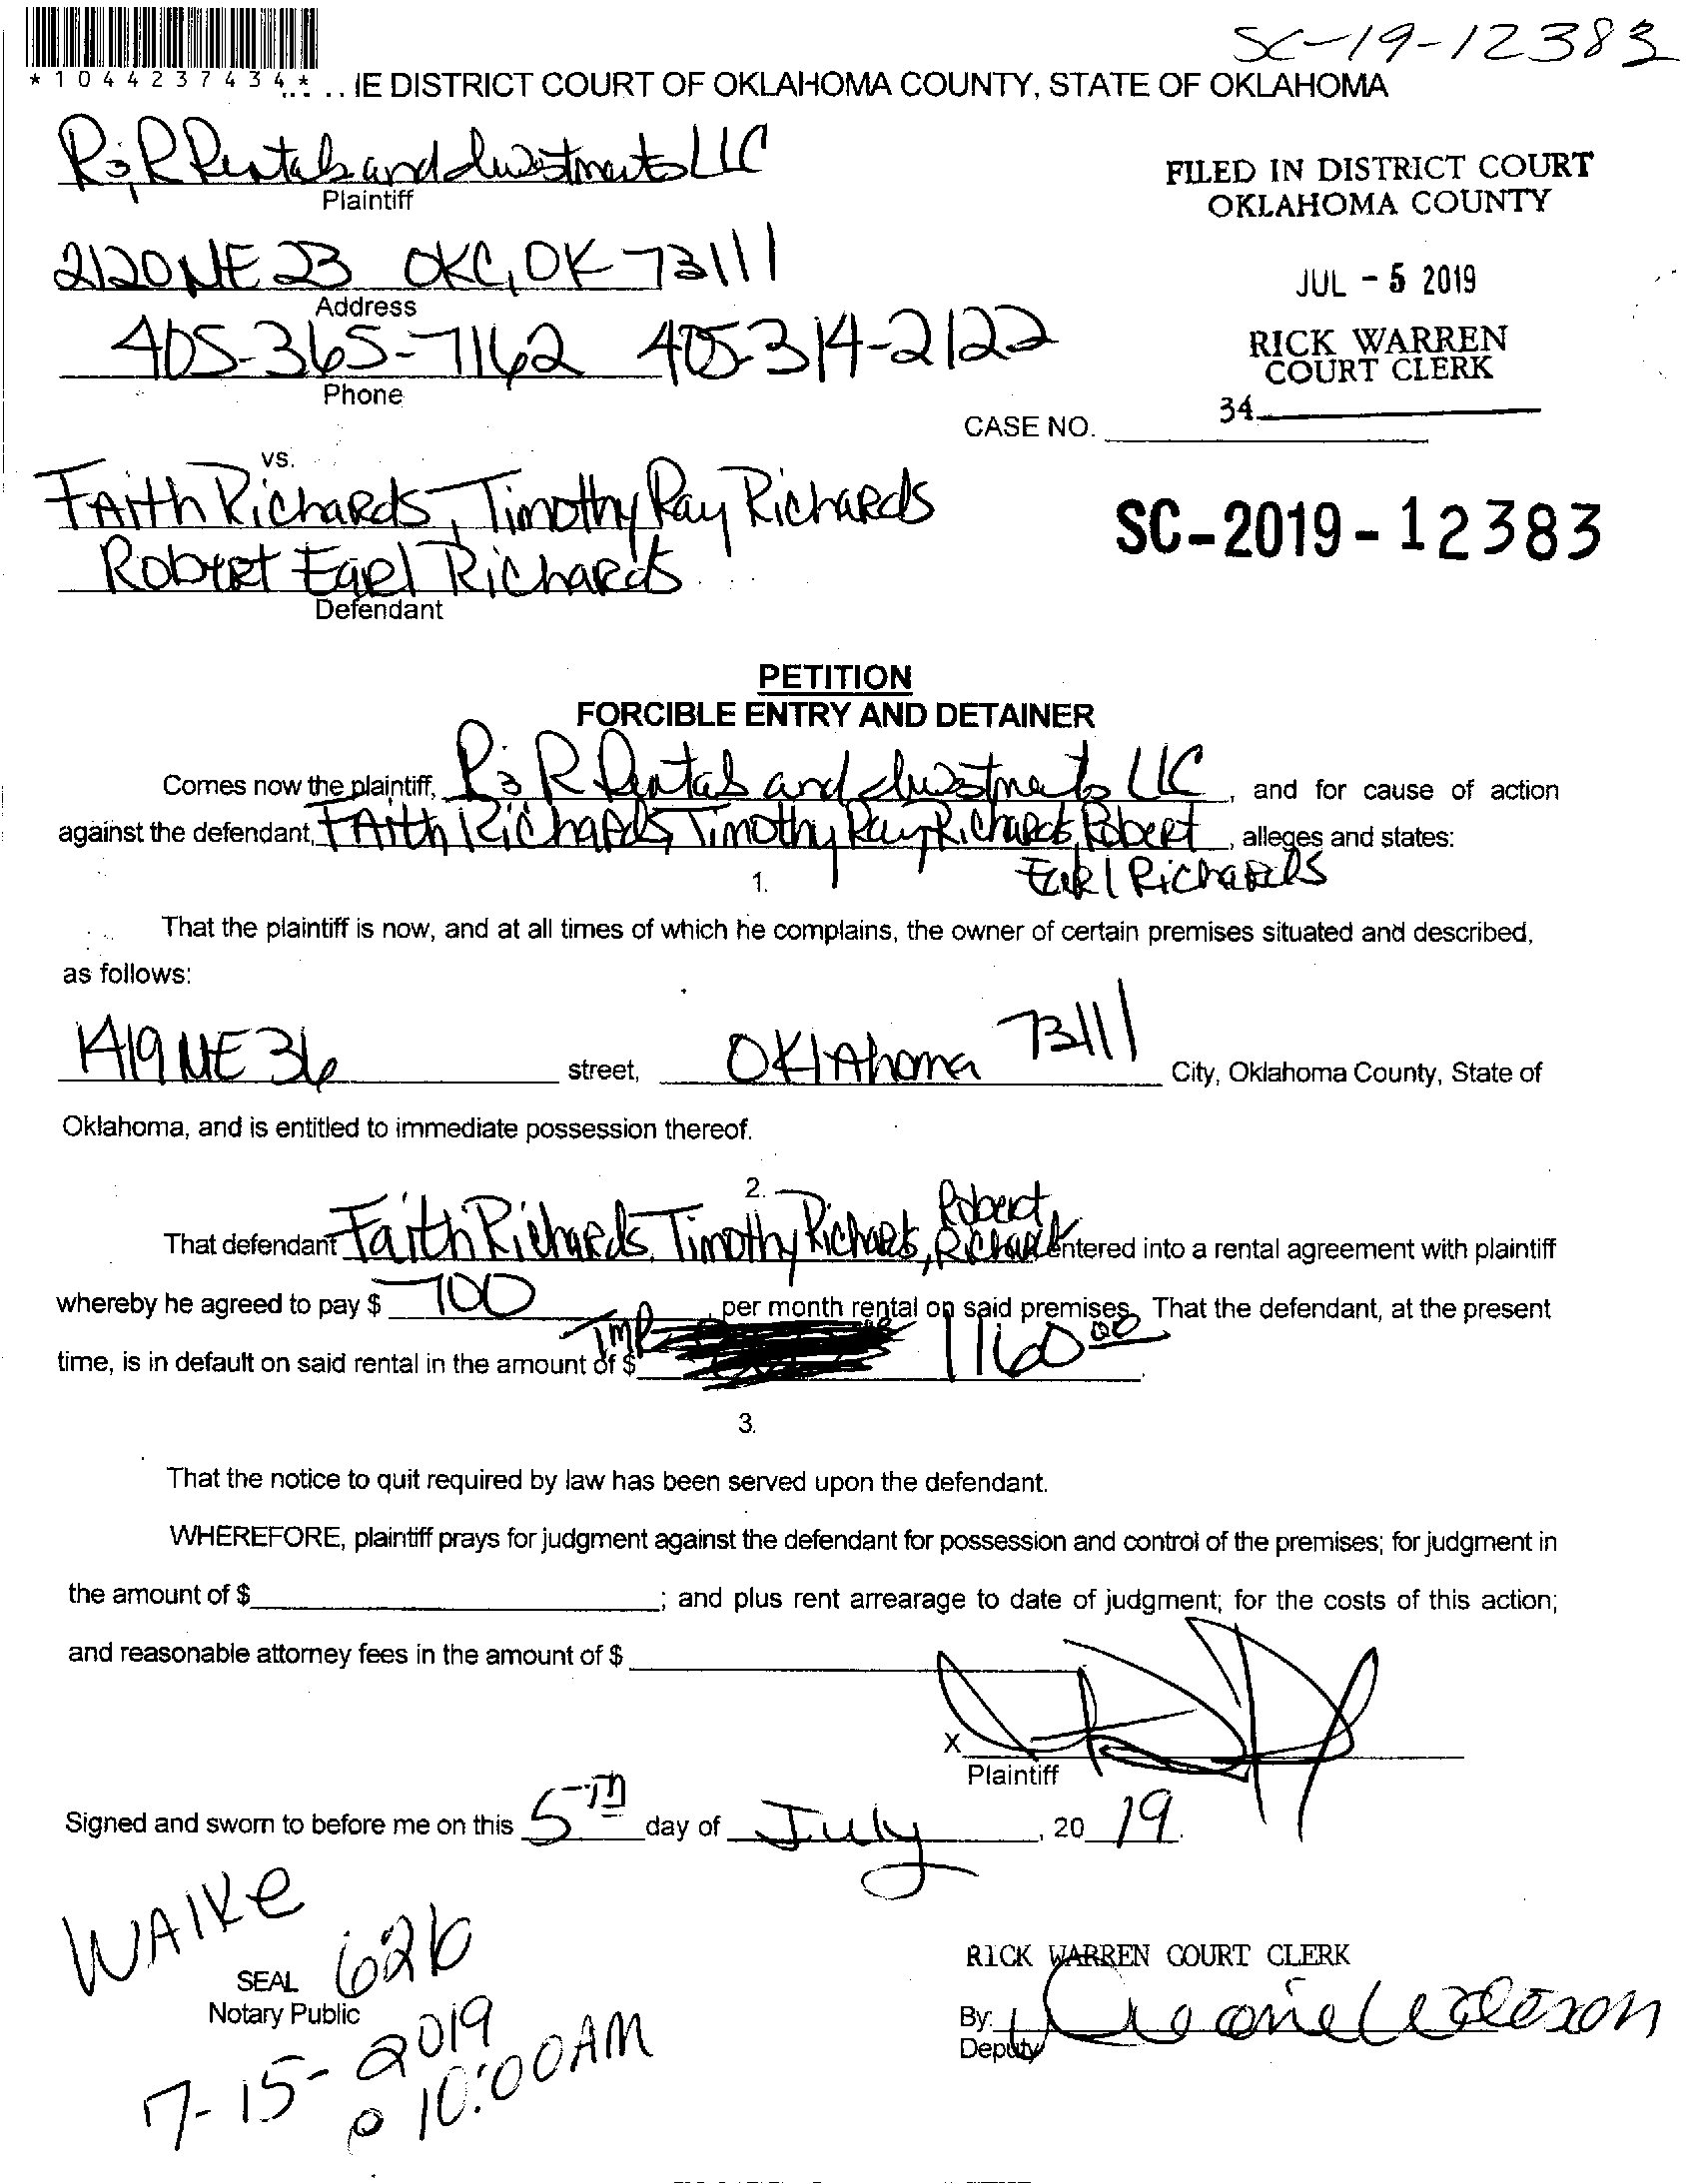 SC-19-12383
*1044237434*
IE DISTRICT COURT OF OKLAHOMA COUNTY, STATE OF OKLAHOMA
R&R Rentals and Investments LLC
Plaintiff
FILED IN DISTRICT COURT
OKLAHOMA COUNTY
2120 NE 23 OKC, OK 73111
Address
JUL - 5 2019
405-365-7162 405-314-2122
Phone
RICK WARREN
COURT CLERK
34
CASE NO.
vs.
FAith Richards, Timothy Ray Richards
Robert Earl Richards
Defendant
SC-2019-12383
PETITION
FORCIBLE ENTRY AND DETAINER
Comes now the plaintiff, R&R Rentals and Investments LLC, and for cause of action
against the defendant, FAith Richards, Timothy Ray Richards, Robert, alleges and states:
Earl Richards
1.
That the plaintiff is now, and at all times of which he complains, the owner of certain premises situated and described,
as follows:
1419 NE 36 street, OKlAhoma 73111 City, Oklahoma County, State of
Oklahoma, and is entitled to immediate possession thereof.
2.
That defendant Faith Richards, Timothy Richards, Robert Richards entered into a rental agreement with plaintiff
whereby he agreed to pay $ 700 per month rental on said premises. That the defendant, at the present
time, is in default on said rental in the amount of $ 1160.00.
3.
That the notice to quit required by law has been served upon the defendant.
WHEREFORE, plaintiff prays for judgment against the defendant for possession and control of the premises; for judgment in
the amount of $ ; and plus rent arrearage to date of judgment; for the costs of this action;
and reasonable attorney fees in the amount of $
X
Plaintiff
Signed and sworn to before me on this 5TH day of July, 2019.
WAIKe
SEAL 626
Notary Public
7-15-2019
@ 10:00AM
RICK WARREN COURT CLERK
By:
Deputy